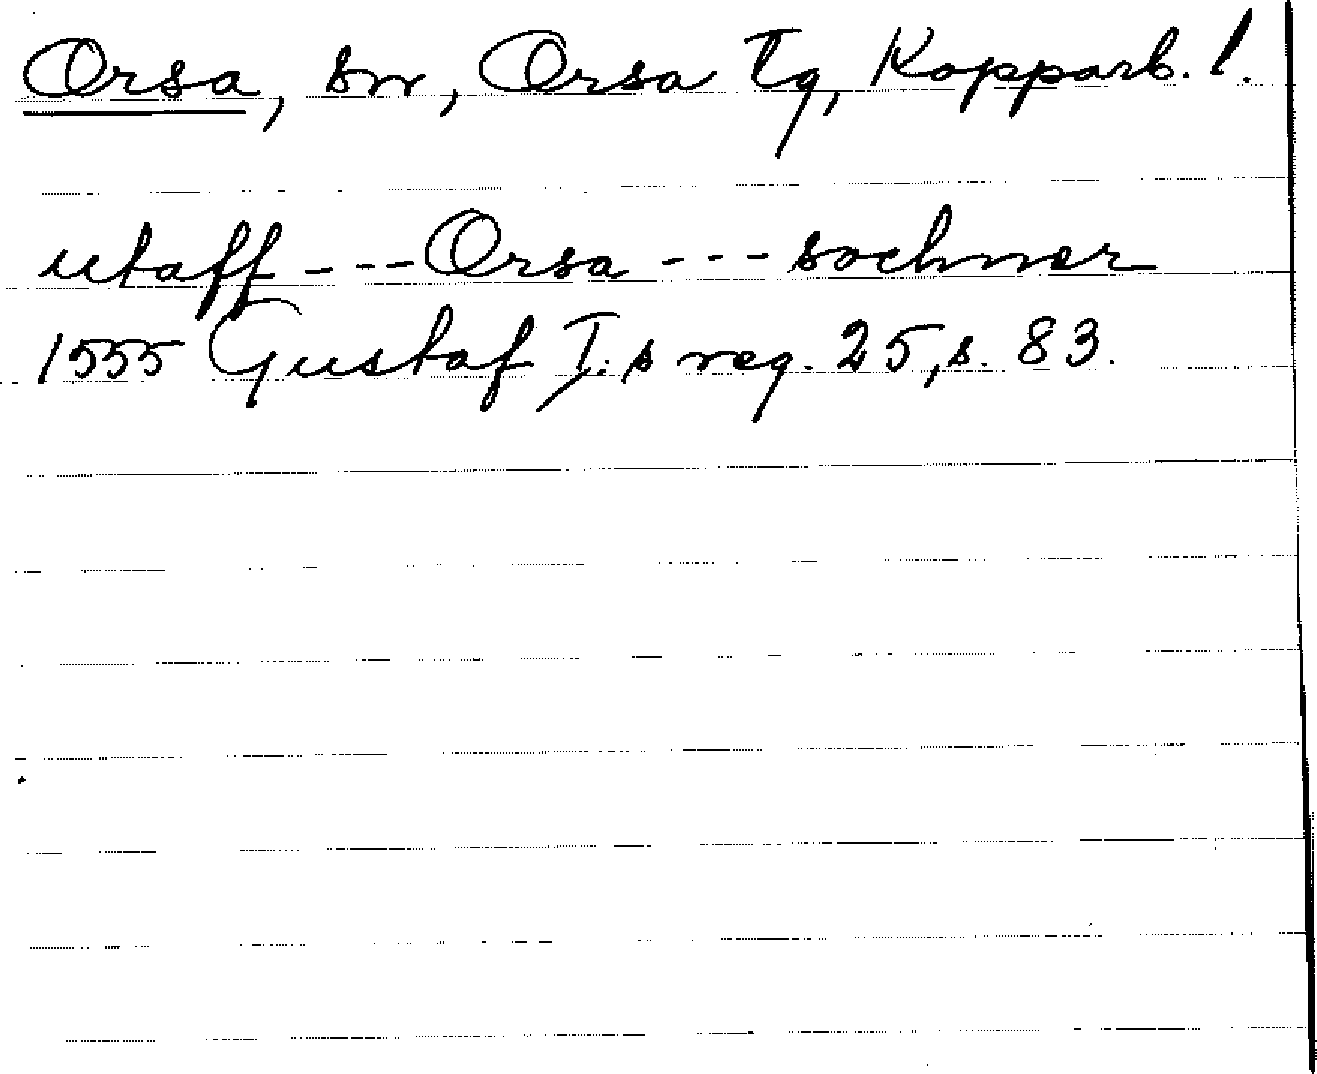 Orsa, sn, Orsa tg, Kopparb. l.
utaff --- Orsa --- sochner
1555 Gustaf I:s reg. 25, s. 83.